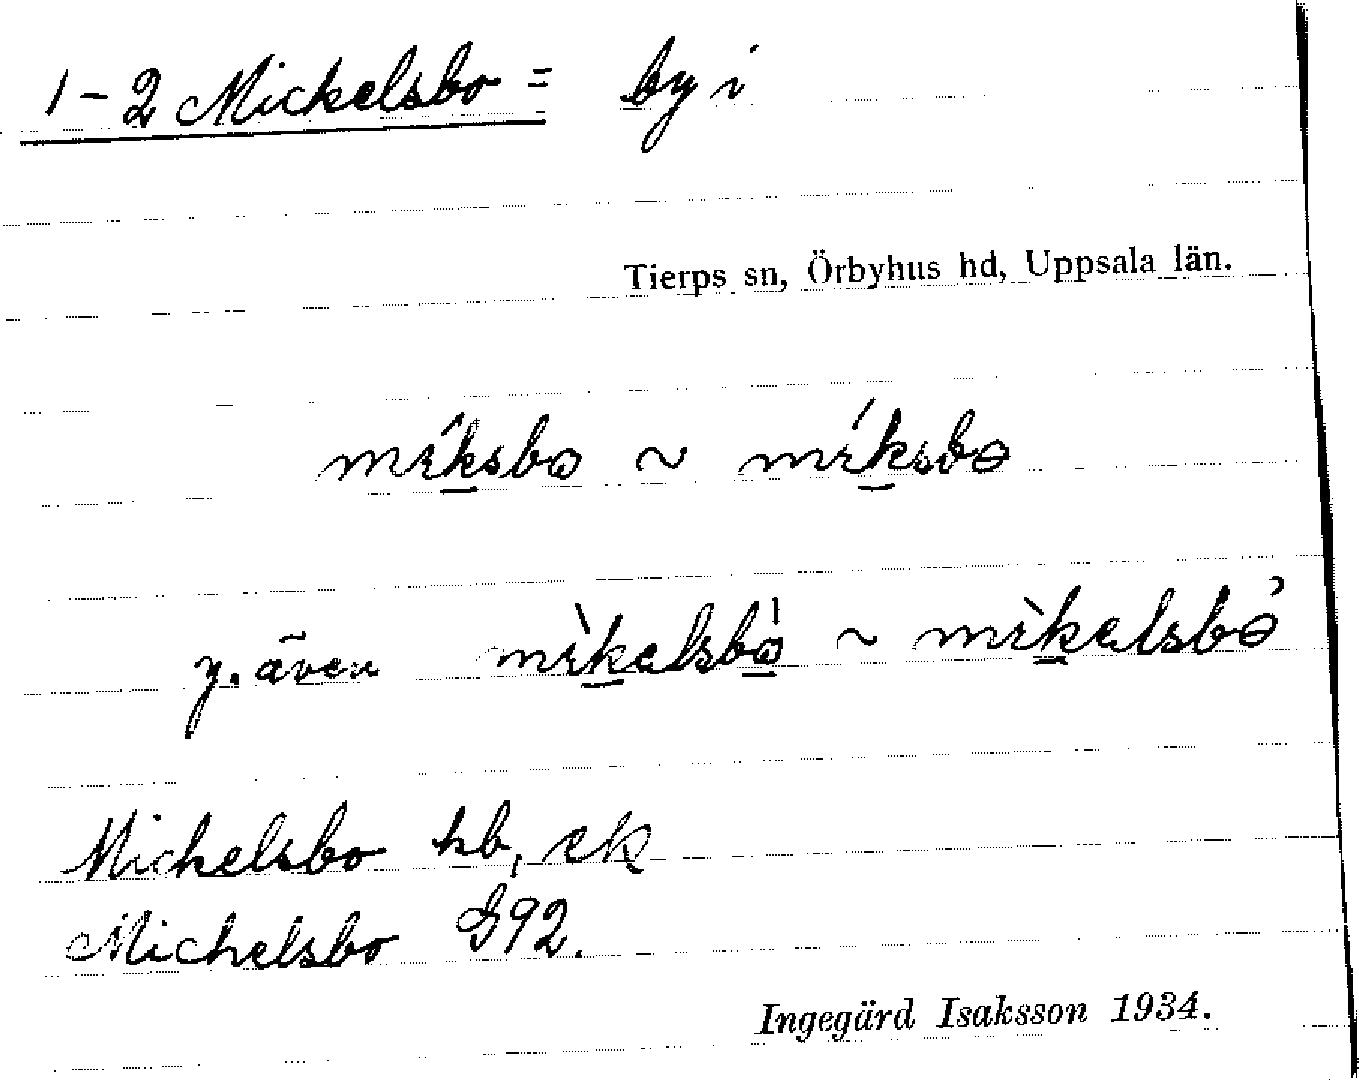 1-2 Mickelsbo = by i
Tierps sn, Örbyhus hd, Uppsala län.
míksbo ~ míksbə
y. även mìkelsbò ~ mìkelsbə̀
Mickelsbo hb, ek
Michelsbo G92.
Ingegärd Isaksson 1934.